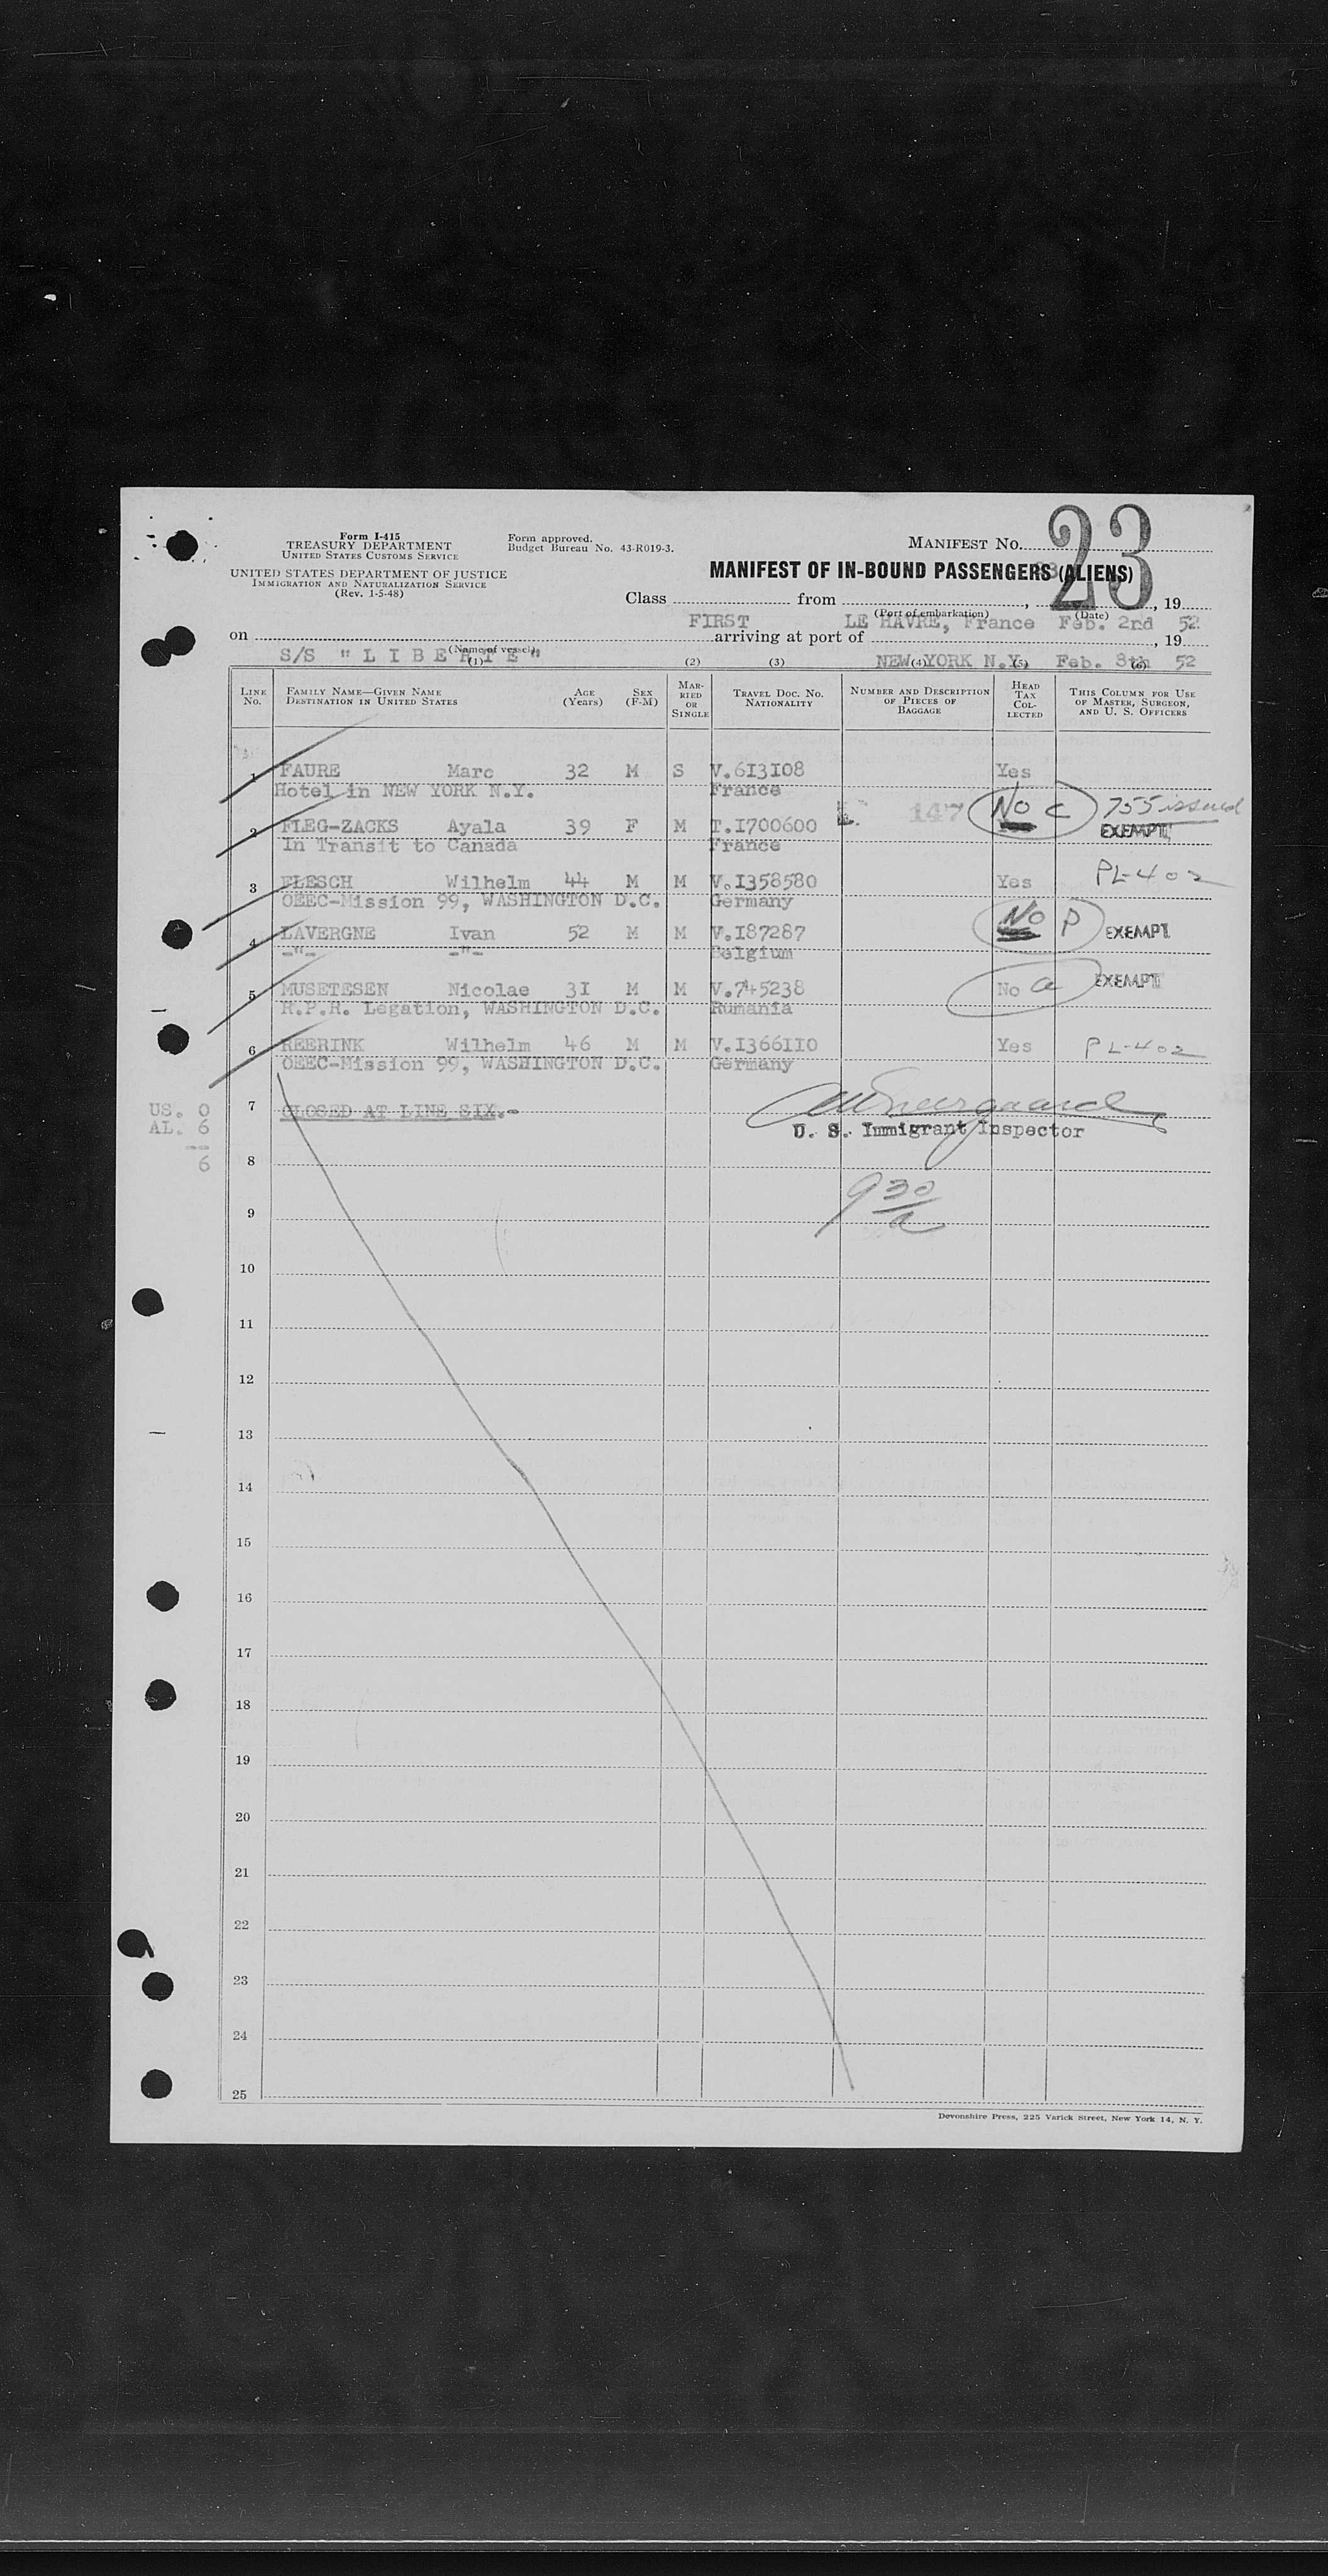 Form I-415
TREASURY DEPARTMENT
UNITED STATES CUSTOMS SERVICE
UNITED STATES DEPARTMENT OF JUSTICE
IMMIGRATION AND NATURALIZATION SERVICE
(Rev. 1-5-48)
Form approved.
Budget Bureau No. 43-R019-3.
MANIFEST NO. 23
MANIFEST OF IN-BOUND PASSENGERS (ALIENS)
Class from , , 19
(Port of embarkation) (Date)
FIRST LE HAVRE, France Feb. 2nd 52
on arriving at port of , 19
(Name of vessel)
S/S "LIBERTE" NEW YORK N.Y. Feb. 8th 52
(1) (2) (3) (4) (5) (6)
LINE NO. FAMILY NAME—GIVEN NAME DESTINATION IN UNITED STATES AGE (Years) SEX (F-M) MARRIED OR SINGLE TRAVEL DOC. NO. NATIONALITY NUMBER AND DESCRIPTION OF PIECES OF BAGGAGE HEAD TAX COLLECTED THIS COLUMN FOR USE OF MASTER, SURGEON, AND U. S. OFFICERS
1 FAURE Marc 32 M S V.613108 Yes
Hotel in NEW YORK N.Y. France
2 FLEG-ZACKS Ayala 39 F M T.I700600 147 No C 755 issued EXEMPT
In Transit to Canada France
3 FLESCH Wilhelm 44 M M V.I358580 Yes PL-402
OEEC-Mission 99, WASHINGTON D.C. Germany
4 LAVERGNE Ivan 52 M M V.I87287 No P EXEMPT
-"- -"- Belgium
5 MUSETESEN Nicolae 31 M M V.745238 No a EXEMPT
R.P.R. Legation, WASHINGTON D.C. Rumania
6 REERINK Wilhelm 46 M M V.I366110 Yes PL-402
OEEC-Mission 99, WASHINGTON D.C. Germany
US. 0
AL. 6
--
6
7 CLOSED AT LINE SIX.-
U. S. Immigrant Inspector
8
930/a
9
10
11
12
13
14
15
16
17
18
19
20
21
22
23
24
25
Devonshire Press, 225 Varick Street, New York 14, N. Y.